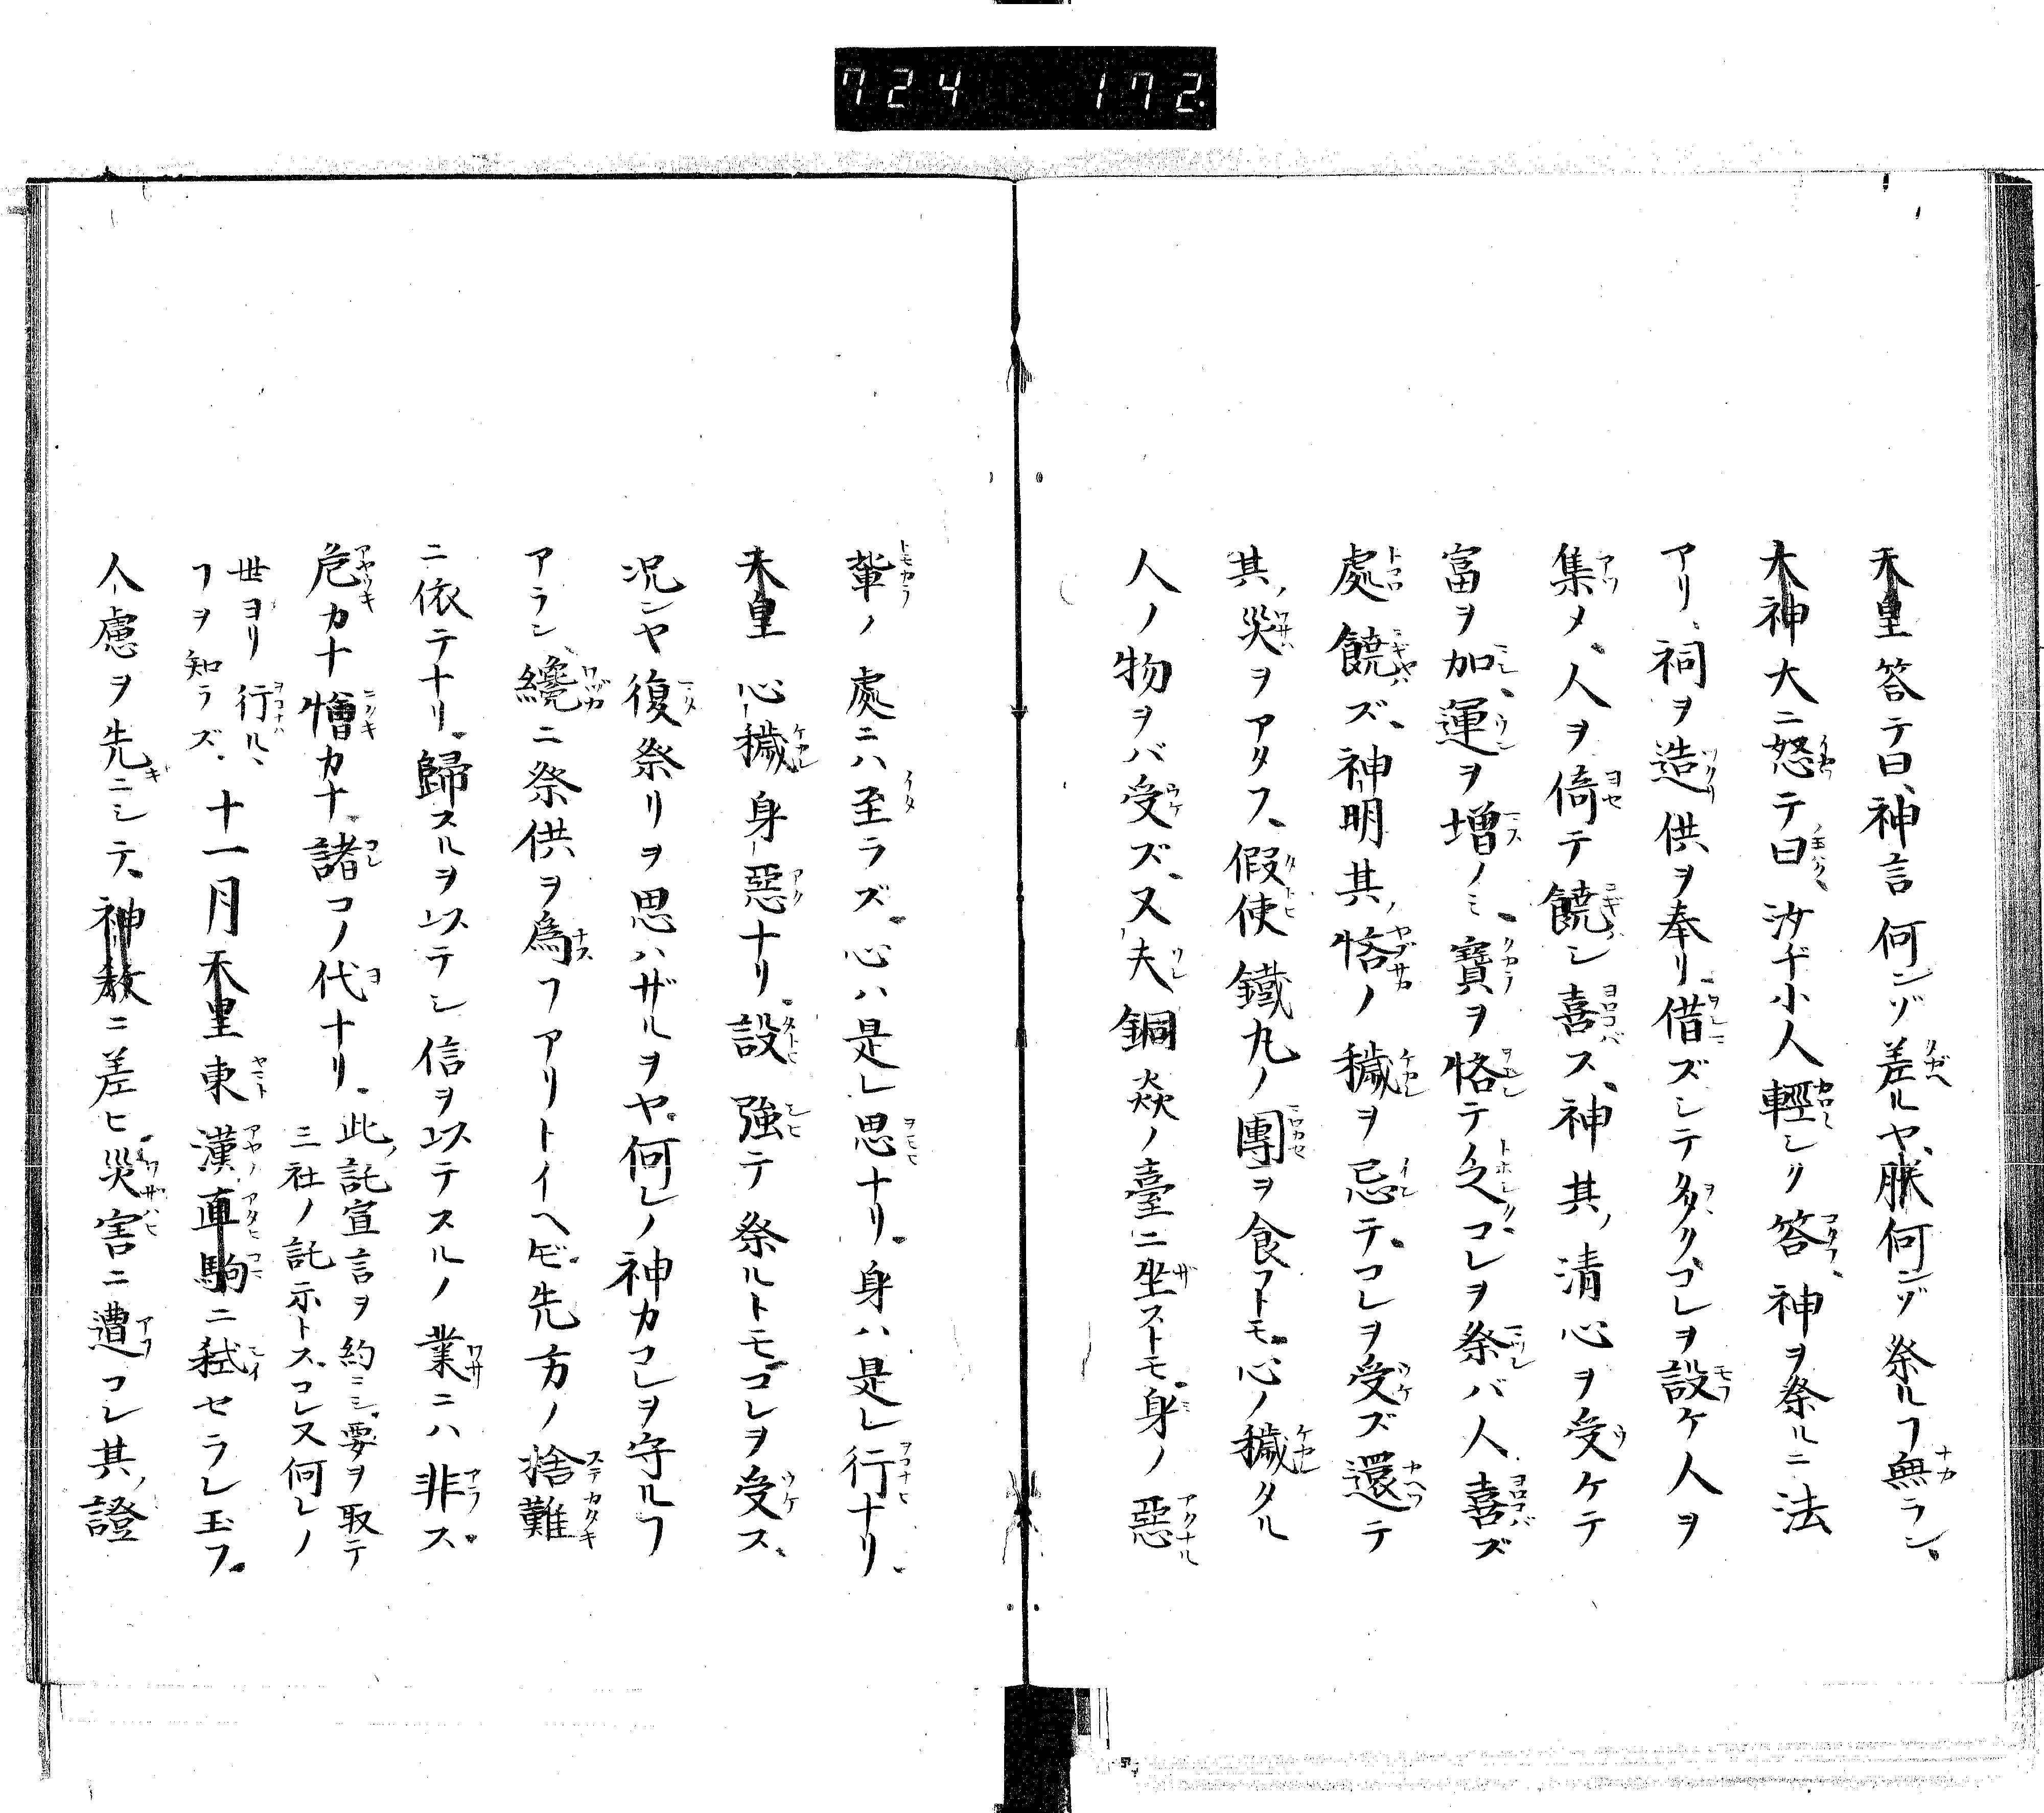 724 172
天皇答テ曰、神言何ンゾ差ルヤ、朕何ンゾ祭ルヿ無ラン。
大神大ニ怒テ曰、汝チ小人輕シク答、神ヲ祭ルニ法
アリ、祠ヲ造供ヲ奉リ、借ズシテ多ク、コレヲ設ケ人ヲ
集メ、人ヲ倚テ饒シ喜ス、神其ノ清心ヲ受ケテ
富ヲ加、運ヲ増ノミ、寶ヲ悋テ乏コレヲ祭バ人喜ズ
處饒ズ、神明其ノ悋ノ穢ヲ忌テ、コレヲ受ズ還テ
其ノ災ヲアタフ、假使鐵丸ノ團ヲ食フトモ、心ノ穢タル
人ノ物ヲバ受ズ、又夫銅焱ノ臺ニ坐ストモ、身ノ惡
輩ノ處ニハ至ラズ。心ハ是レ思ナリ。身ハ是レ行ナリ。
天皇心穢身惡ナリ。設強テ祭ルトモ、コレヲ受ス、
况ンヤ復祭リヲ思ハザルヲヤ。何レノ神カコレヲ守ルヿ
アラン、纔ニ祭供ヲ爲ヿアリトイヘ𪜈。先方ノ捨難
ニ依テナリ。歸スルヲ以テシ信ヲ以テスルノ業ニハ非ス。
危カナ憎カナ。諸コノ代ナリ。此ノ託宣言ヲ約ニシ、要ヲ取テ
三社ノ託示トス。コレ又何レノ
世ヨリ行ル、
ヿヲ知ラズ。十一月天皇東漢直駒ニ弑セラレ玉フ。
人慮ヲ先ニシテ、神敎ニ差ヒ。災害ニ遭コレ其ノ證